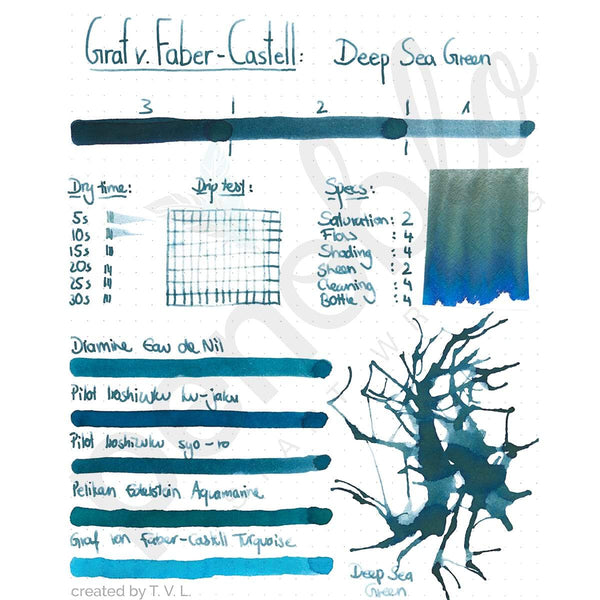 Graf v. Faber-Castell: Deep Sea Green
3 2 1
Dry time:
5s
10s
15s
20s
25s
30s
Drip test:
Specs:
Saturation: 2
Flow : 4
Shading : 4
Sheen : 2
Cleaning : 4
Bottle : 4
Diamine Eau de Nil
Pilot Iroshizuku ku-jaku
Pilot Iroshizuku syo-ro
Pelikan Edelstein Aquamarine
Graf von Faber-Castell Turquoise
Deep Sea
Green
created by T. V. L.
penoblo